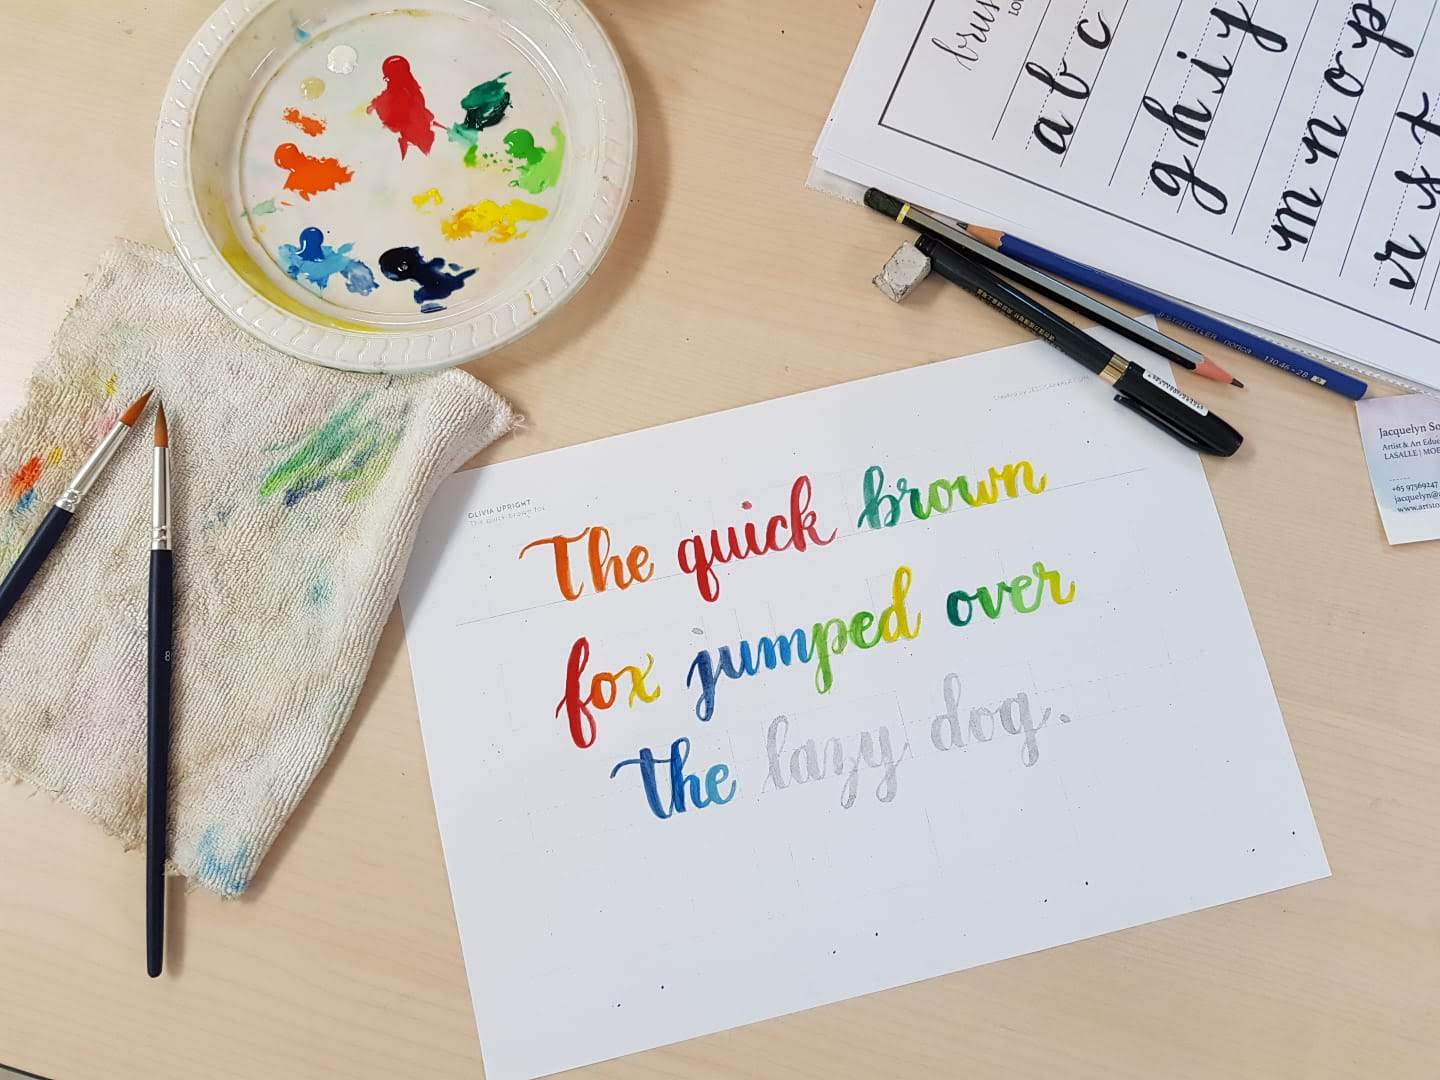 brus
a b c
g h i y
m n o p
r s t
STAEDTLER norica 130 46-2B
Jacquelyn So
Artist & Art Educ
LASALLE | MOE
+65 97569247
jacquelyn@a
www.artsto
OLIVIA UPRIGHT
The quick brown fox
The quick brown
fox jumped over
the lazy dog.